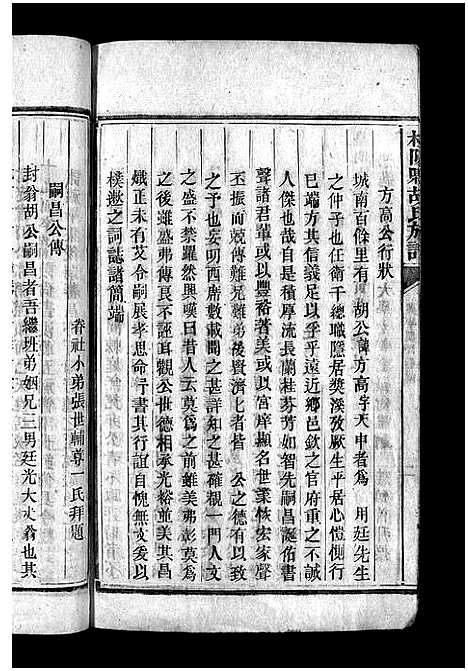 方高公行狀
城南百餘里有 胡公諱方高字天申者爲 用廷先生
之仲子也任衛千總職隱居奬溪孜厥生平居心愷側行
已端方其見孚乎遠近鄉邑欽之官府重之不誠
人傑也哉自是積厚流長蘭桂芬芳如智先嗣昌誕佑書
聲諸君輩或以豐裕著美或以宮庠顯名世業恢宏家聲
丕振而兢傳難兄難弟後賢濟七者皆 公之德有以致
之予也妄叨西席數載間之甚詳知之甚確觀一門人文
之盛不禁躍然嘆曰昔人云莫爲之前雖美弗彰莫爲
之後雖盛弗傳良不誣耳觀公世德相承光裕並美其昌
熾正未有艾令嗣展孝思命行書其行誼自愧無文委以
樸遬之詞誌諸簡端
眷社小弟張世輔尊一氏拜題
嗣昌公傳
封翁胡公嗣昌者吾繼班弟姻兄三男廷光大丈翁也其